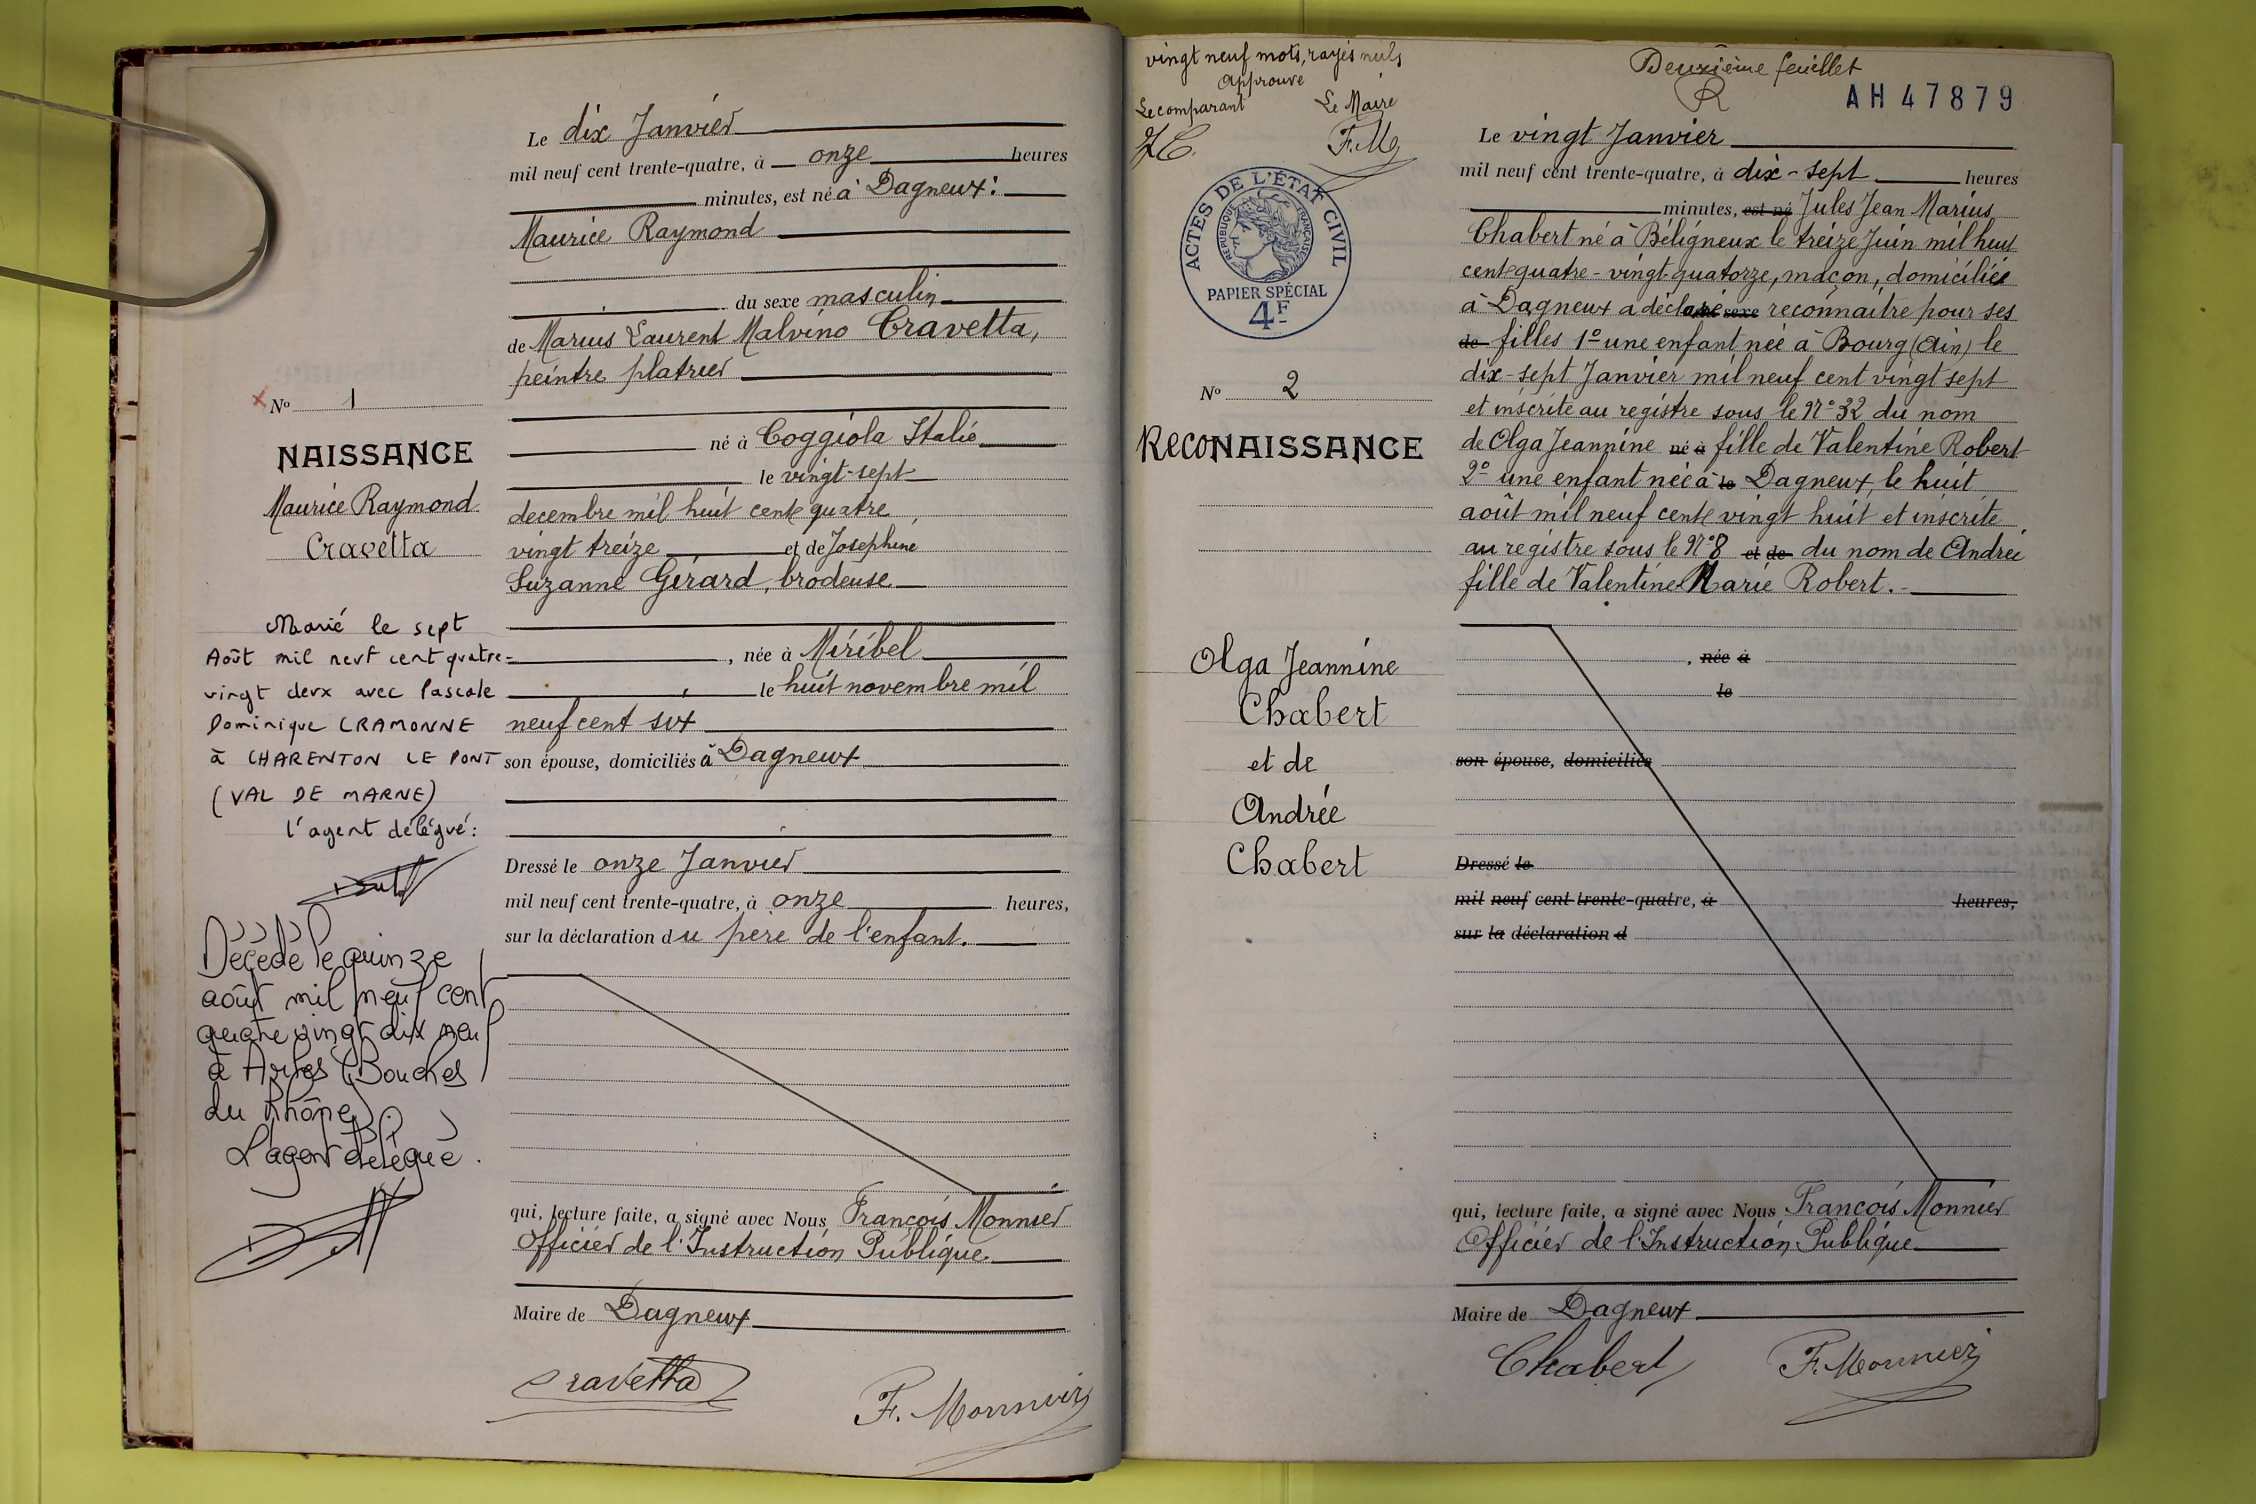 Le dix Janvier
mil neuf cent trente-quatre, à onze heures
minutes, est né à Dagneux:
Maurice Raymond
du sexe masculin
de Marius Laurent Malvino Cravetta,
peintre platrier
né à Coggiola Italie
le vingt-sept
decembre mil huit cent quatre
vingt treize et de Josephine
Suzanne Gérard, brodeuse
, née à Miribel
le huit novembre mil
neuf cent six
son épouse, domiciliés à Dagneux
Dressé le onze Janvier
mil neuf cent trente-quatre, à onze heures,
sur la déclaration du père de l'enfant.
qui, lecture faite, a signé avec Nous François Monnier
Officier de l'Instruction Publique.
Maire de Dagneux
Cravetta
F. Monnier
No 1
NAISSANCE
Maurice Raymond
Cravetta
Marié le sept
Août mil neuf cent quatre-
vingt deux avec Pascale
Dominique CRAMONNE
à CHARENTON LE PONT
(VAL DE MARNE)
l'agent délégué:
Décédé le quinze
août mil neuf cent
quatre vingt dix neuf
à Arles (Bouches
du Rhône)
L'agent délégué.
vingt neuf mots, rayés nuls
Approuvé
Le comparant Le Maire
F.M.
ACTES DE L'ÉTAT CIVIL
RÉPUBLIQUE FRANÇAISE
PAPIER SPÉCIAL
4F
No 2
RecoNAISSANCE
Olga Jeannine
Chabert
et de
Andrée
Chabert
Deuxième feuillet
R
AH 47879
Le vingt Janvier
mil neuf cent trente-quatre, à dix-sept heures
minutes, est né Jules Jean Marius
Chabert né à Béligneux le treize Juin mil huit
cent quatre-vingt-quatorze, maçon, domicilié
à Dagneux a déclaré sexe reconnaitre pour ses
de filles 1° une enfant née à Bourg (Ain) le
dix-sept Janvier mil neuf cent vingt sept
et inscrite au registre sous le N° 32 du nom
de Olga Jeannine né à fille de Valentine Robert
2° une enfant née à le Dagneux, le huit
août mil neuf cent vingt huit et inscrite
au registre sous le N° 8 et de du nom de Andrée
fille de Valentine Marie Robert.
, née à
le
son épouse, domiciliés
Dressé le
mil neuf cent trente-quatre, à heures,
sur la déclaration d
qui, lecture faite, a signé avec Nous François Monnier
Officier de l'Instruction Publique
Maire de Dagneux
Chabert
F. Monnier